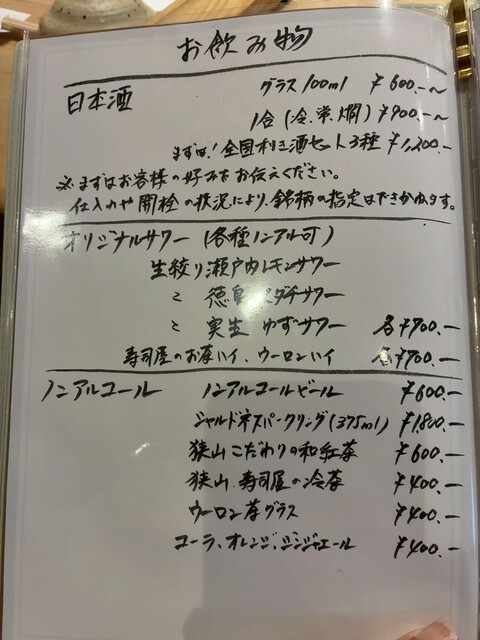 お飲み物
日本酒 グラス 100ml ¥600.-~
1合 (冷.常.燗) ¥900.-~
まずは! 全国利き酒セット3種 ¥1,200.-
※まずはお客様の好みをお伝えください。
仕入れや開栓の状況により、銘柄の指定はできかねます。
オリジナルサワー (各種ノンアル可)
生絞り瀬戸内レモンサワー
〃 徳島スダチサワー
〃 実生 ゆずサワー 各¥700.-
寿司屋のお茶ハイ、ウーロンハイ 各¥700.-
ノンアルコール ノンアルコールビール ¥600.-
シャルドネスパークリング(375ml) ¥1,800.-
狭山こだわりの和紅茶 ¥600.-
狭山.寿司屋の冷茶 ¥400.-
ウーロン茶グラス ¥400.-
コーラ、オレンジ、ジンジャエール ¥400.-